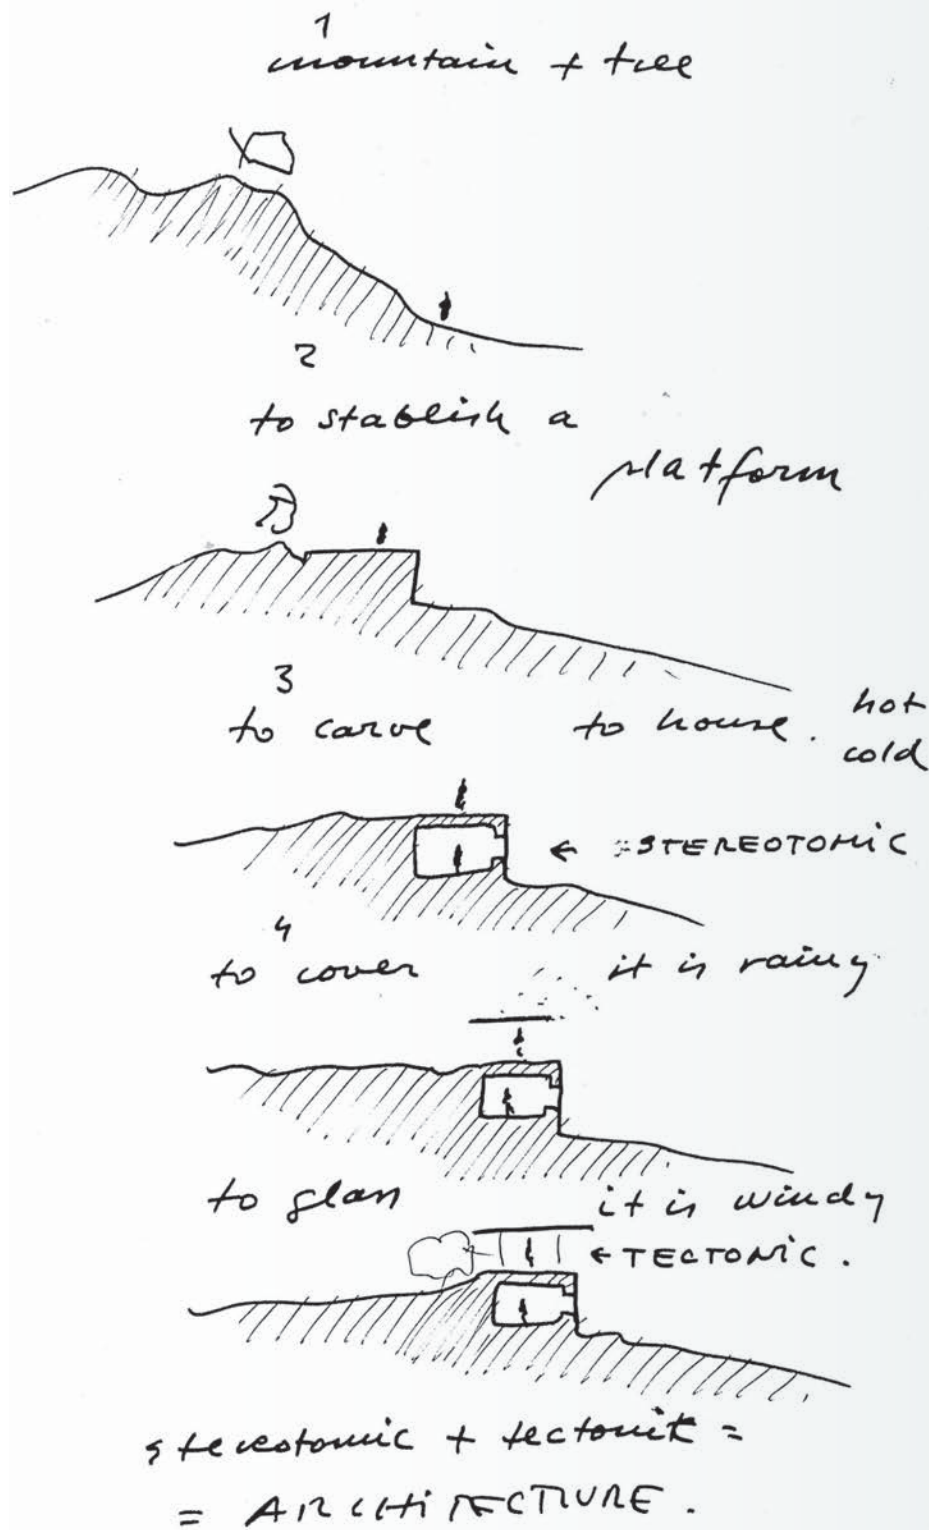 1
mountain + tree
2
to stablish a
platform
3
to carve to house. hot
cold
← STEREOTOMIC
4
to cover it is rainy
to glass it is windy
← TECTONIC.
stereotomic + tectonic =
= ARCHITECTURE.